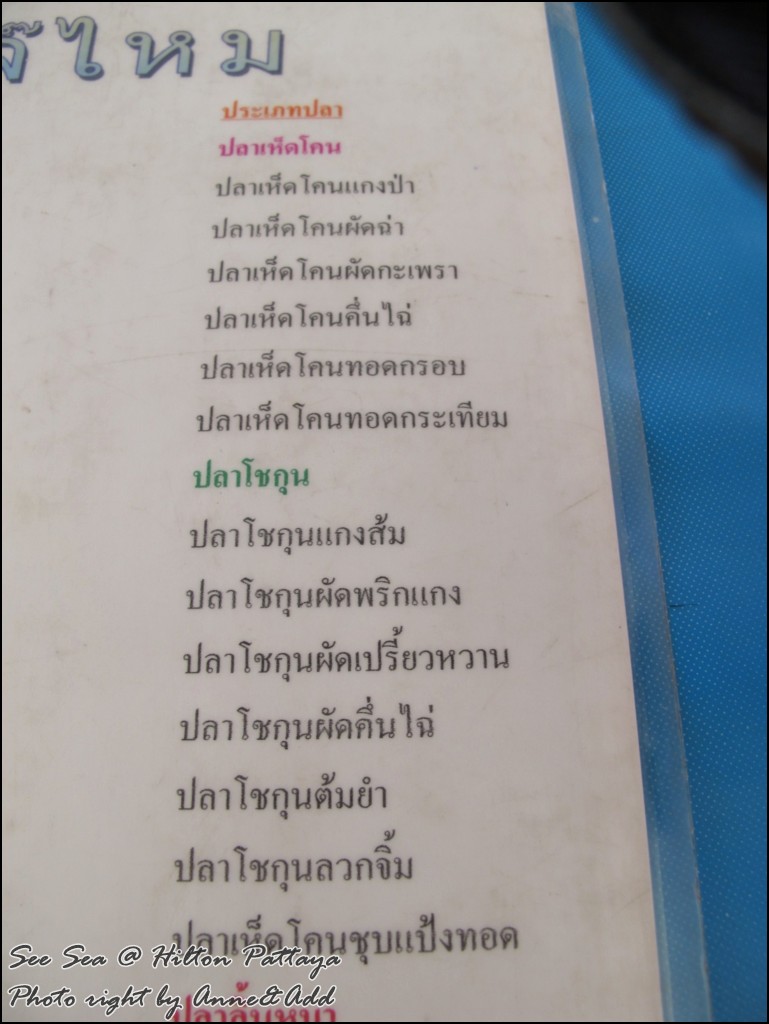 ไหม
ประเภทปลา
ปลาเห็ดโคน
ปลาเห็ดโคนแกงป่า
ปลาเห็ดโคนผัดฉ่า
ปลาเห็ดโคนผัดกะเพรา
ปลาเห็ดโคนคึ่นไฉ่
ปลาเห็ดโคนทอดกรอบ
ปลาเห็ดโคนทอดกระเทียม
ปลาโชกุน
ปลาโชกุนแกงส้ม
ปลาโชกุนผัดพริกแกง
ปลาโชกุนผัดเปรี้ยวหวาน
ปลาโชกุนผัดคึ่นไฉ่
ปลาโชกุนต้มยำ
ปลาโชกุนลวกจิ้ม
ปลาเห็ดโคนชุบแป้งทอด
See Sea @ Hilton Pattaya
Photo right by Anne&Add
ปลาลิ้นหมา